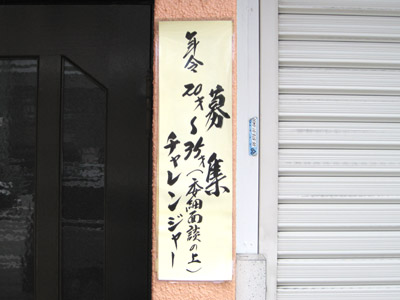 募集
年令 20才〜35才(委細面談の上)
チャレンジャー